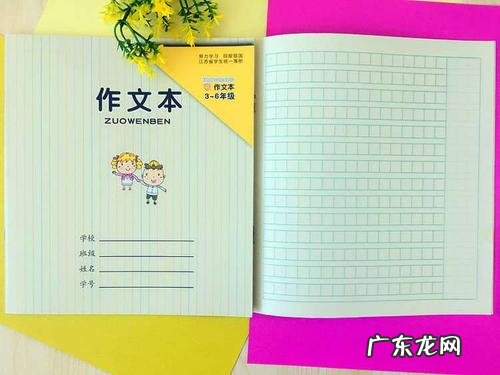 努力学习 回报祖国
江苏省学生统一簿册
ZUOWENBEN
作文本
3~6年级
作文本
ZUOWENBEN
学校
班级
姓名
学号
广东龙网